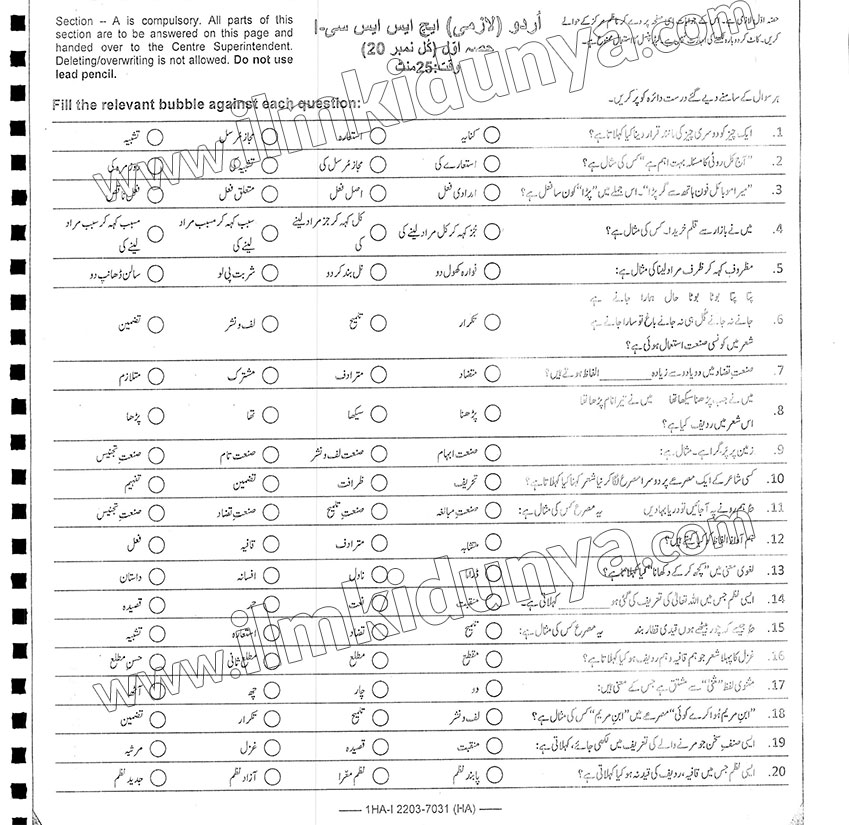 Section – A is compulsory. All parts of this
section are to be answered on this page and
handed over to the Centre Superintendent.
Deleting/overwriting is not allowed. Do not use
lead pencil.
اُردو (لازمی) ایچ ایس ایس سی-I
حصہ اوّل (کُل نمبر 20)
وقت: 25 منٹ
Fill the relevant bubble against each question:
ہر سوال کے سامنے دیے گئے درست دائرہ کو پُر کریں۔
1. ایک چیز کو دوسری چیز کی مانند قرار دینا کیا کہلاتا ہے؟ کنایہ استعارہ مجاز مرسل تشبیہ
2. "آج کل روٹی کا مسئلہ بہت اہم ہے" کس کی مثال ہے؟ استعارے کی مجاز مرسل کی تشبیہ کی روزمرہ کی
3. "میرا موبائل فون ہاتھ سے گر پڑا"۔ اس جملے میں "پڑا" کون سا فعل ہے؟ امدادی فعل اصل فعل متعلق فعل فعل ناقص
4. میں نے بازار سے قلم خریدا۔ کس کی مثال ہے؟ جُز کہہ کر کل مراد لینے کی کل کہہ کر جز مراد لینے کی سبب کہہ کر مسبب مراد لینے کی مسبب کہہ کر سبب مراد لینے کی
5. مظروف کہہ کر ظرف مراد لینا کی مثال ہے: فوارہ کھول دو نل بند کر دو شربت پی لو سالن ڈھانپ دو
پتا پتا بوٹا بوٹا حال ہمارا جانے ہے
6. جانے نہ جانے گُل ہی نہ جانے باغ تو سارا جانے ہے تکرار تلمیح لف و نشر تضمین
شعر میں کونسی صنعت استعمال ہوئی ہے؟
7. صنعتِ تضاد میں دو یا دو سے زیادہ ________ الفاظ ہوتے ہیں؟ متضاد مترادف مشترک متلازم
8. میں نے جب پڑھنا سیکھا تھا میں نے تیرا نام پڑھا تھا
اس شعر میں ردیف کیا ہے؟ پڑھنا سیکھا تھا پڑھا
9. زمین پر پر گرا ہے۔ مثال ہے: صنعت ابہام صنعت لف و نشر صنعت تام صنعت تجنیس
10. کسی شاعر کے ایک مصرعے پر دوسرا مصرع لگا کر نیا شعر کہنا کیا کہلاتا ہے؟ تحریف ظرافت تضمین تفہیم
11. ہم رونے پہ آ جائیں تو دریا بہا دیں یہ مصرع کس کی مثال ہے: صنعتِ مبالغہ صنعتِ تلمیح صنعتِ تضاد صنعتِ تجنیس
12. ہم آواز الفاظ کو کیا کہتے ہیں؟ متشابہ مترادف قافیہ فعل
13. لغوی معنی میں "کچھ کر کے دکھانا" کیا کہلاتا ہے؟ ڈراما ناول افسانہ داستان
14. ایسی نظم جس میں اللہ تعالیٰ کی تعریف کی گئی ہو ________ کہلاتی ہے۔ منقبت نعت حمد قصیدہ
15. جیسے کہ چور بیٹھے ہوں قیدی قطار بند یہ مصرع کس کی مثال ہے: تلمیح تضاد استعارہ تشبیہ
16. غزل کا پہلا شعر جو ہم قافیہ و ہم ردیف ہو کیا کہلاتا ہے؟ مقطع مطلع مطلع ثانی حسنِ مطلع
17. مثنوی لفظ "مثنیٰ" سے مشتق ہے جس کے معنی ہیں: دو چار چھ آٹھ
18. "ابنِ مریم ہُوا کرے کوئی" مصرعے میں "ابنِ مریم" کس کی مثال ہے؟ لف و نشر تلمیح تکرار تضمین
19. ایسی صنفِ سخن جو مرنے والے کی تعریف میں لکھی جائے، کہلاتی ہے: منقبت قصیدہ غزل مرثیہ
20. ایسی نظم جس میں قافیہ، ردیف کی قید نہ ہو کیا کہلاتی ہے؟ پابند نظم نظم معرا آزاد نظم جدید نظم
1HA-I 2203-7031 (HA)
www.ilmkidunya.com
www.ilmkidunya.com